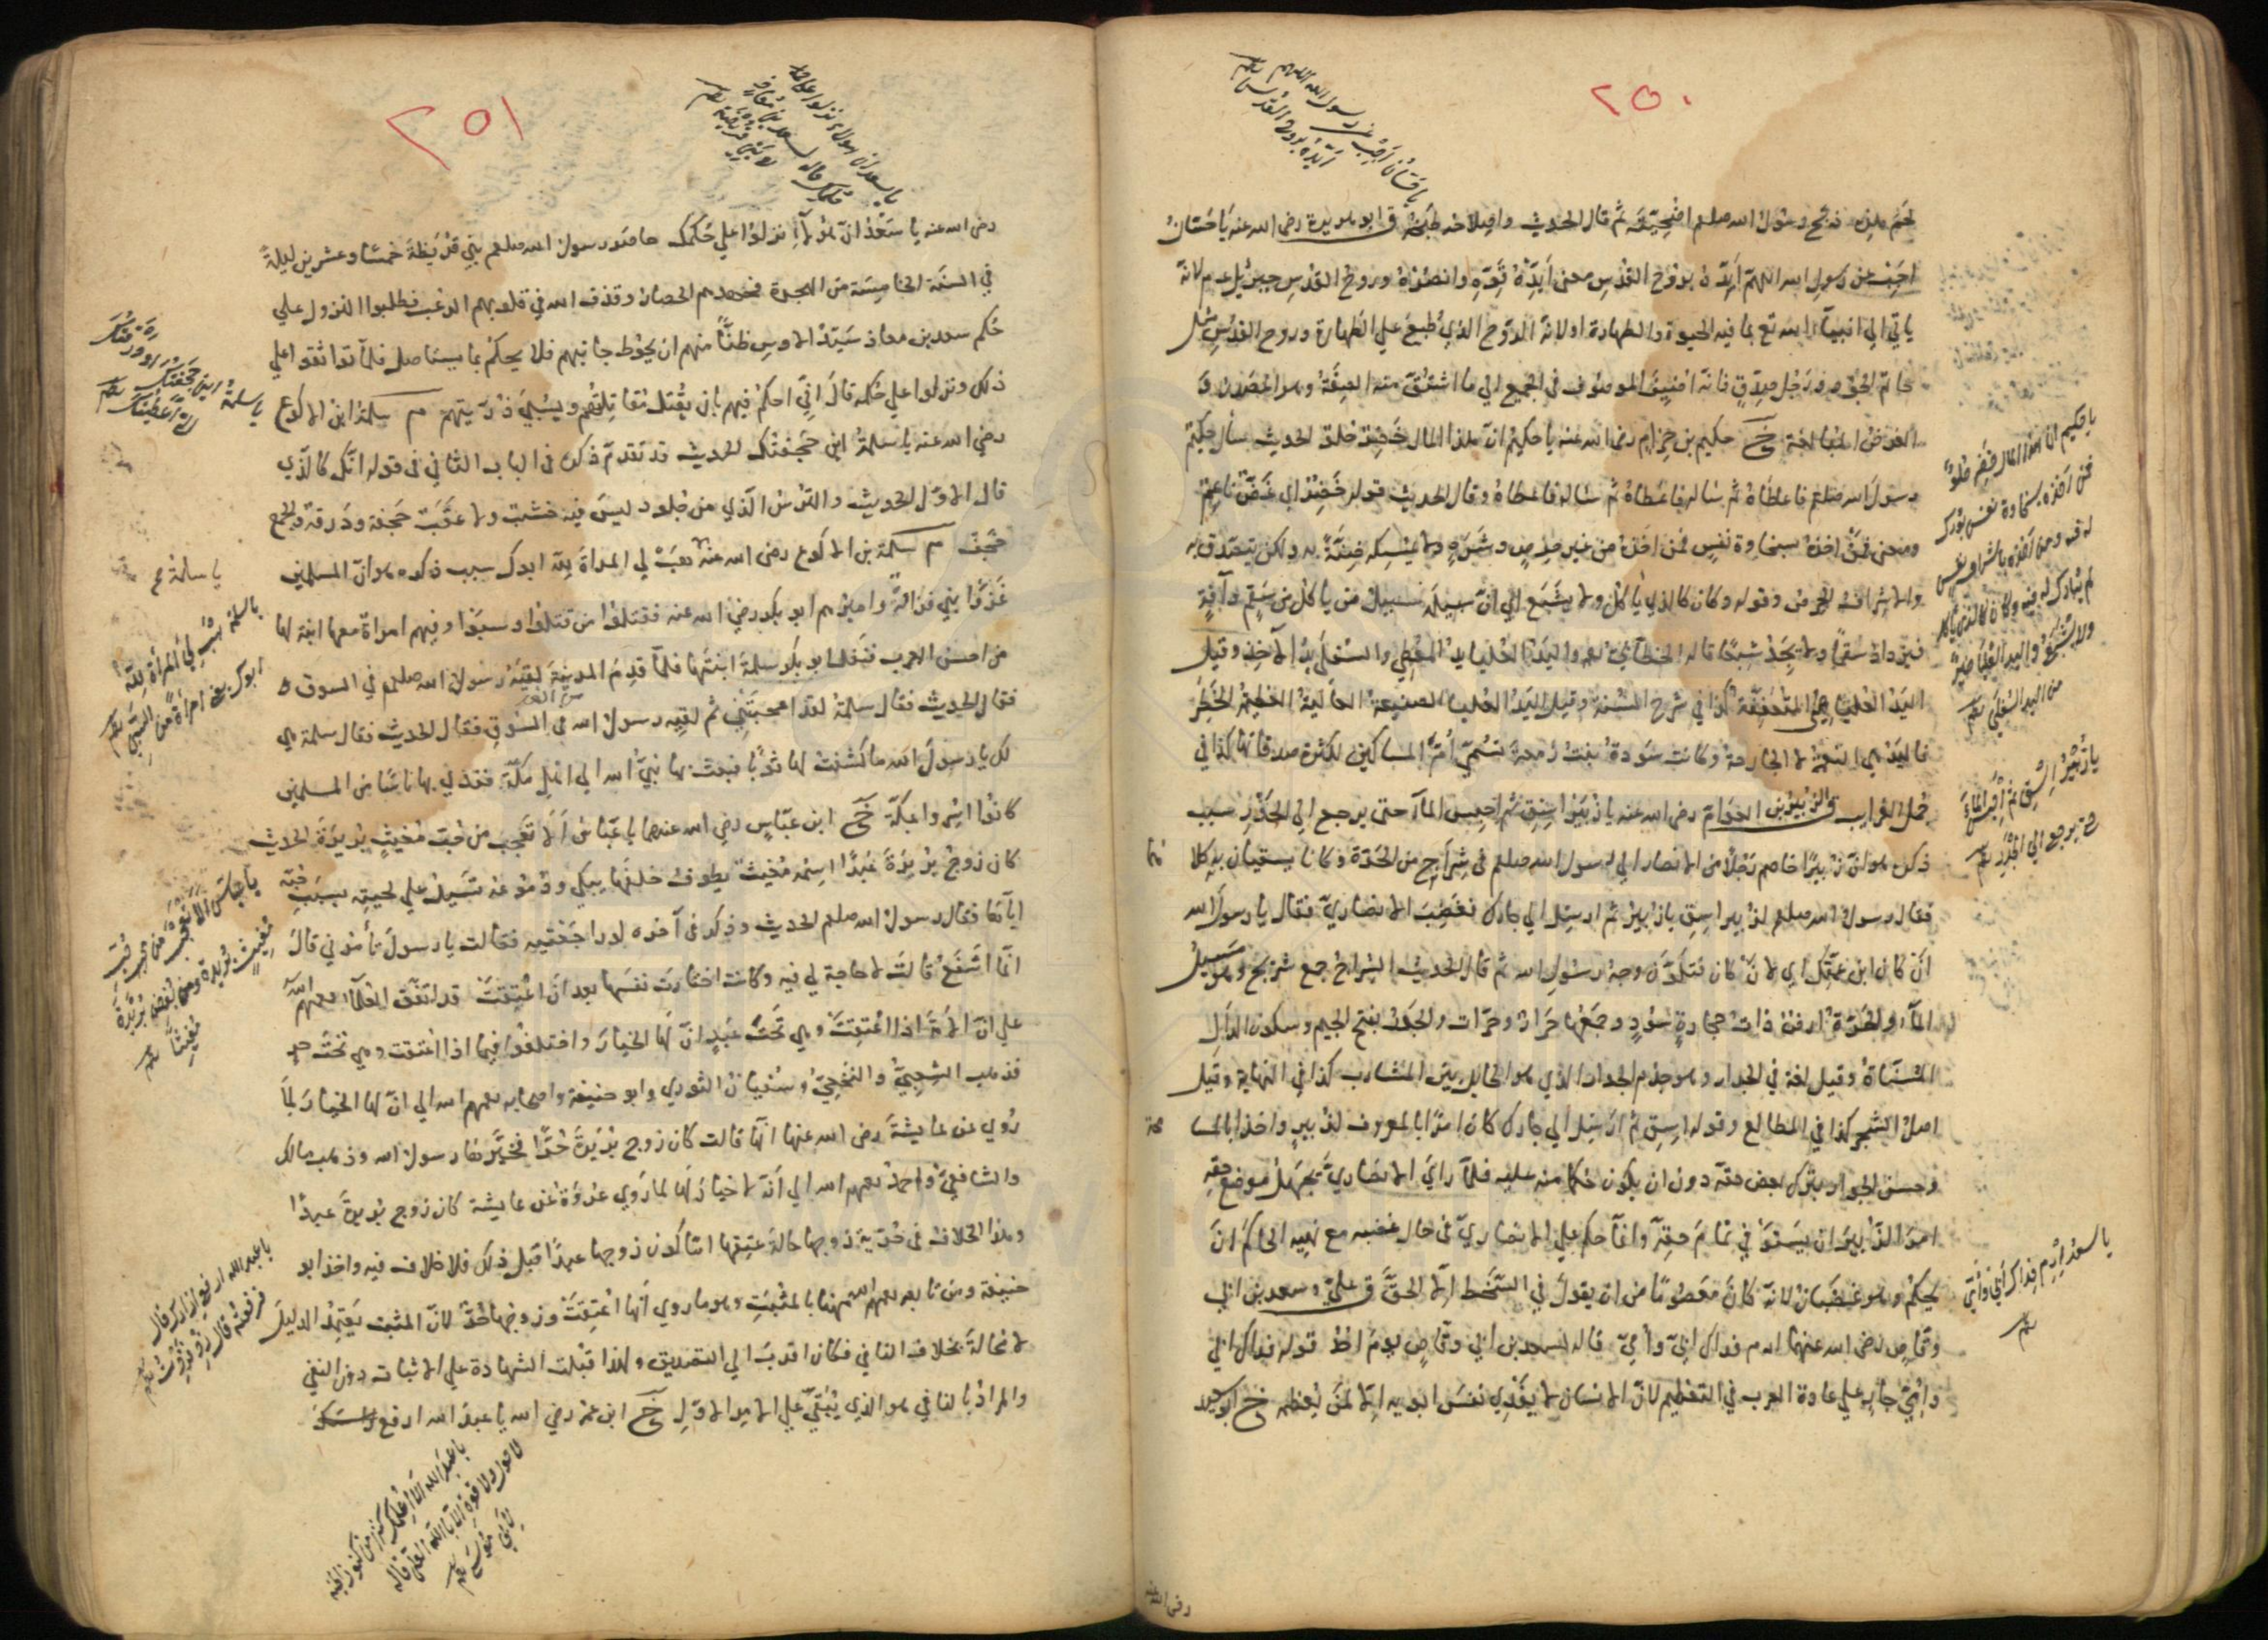 ٢٥٠
يا حسان أجب عن رسول الله اللهم
أيده بروح القدس
لحم هذه ذبح رسول الله صلعم اضحيته ثم قال الحديث واصلاحه طبخه ق ابو هريرة رضى الله عنه يا حسان
اجب عن رسول الله اللهم ايده بروح القدس معنى ايده قوه وانصره وروح القدس جبرئيل عم لانه
ياتي الي انبياء الله تع بما فيه الحيوة والطهارة او لانه الروح الذي طبع علي الطهارة وروح القدس مثل
حاتم الجود ورجل صدق فانه اضيف الموصوف في الجميع الي ما اشتق منه الصفة وهو المصدر
الغرض المبالغة خ حكيم بن حزام رضى الله عنه يا حكيم ان هذا المال خضرة حلوة الحديث سأل حكيم
رسول الله صلعم فاعطاه ثم ساله فاعطاه ثم ساله فاعطاه وقال الحديث قوله خضر اي غض ناعم
ومعنى فمن اخذه بسخاوة نفس فمن اخذه من غير حرص وشره ولا يمسكه ضنة به ولكن يتصدق به
والاشراف الحرص وقوله وكان كالذي ياكل ولا يشبع اي ان سبيله سبيل من ياكل من سقم وآفة
فيزداد سقما ولا يجد شبعا قاله الخطابي قوله واليد العليا يد المعطي والسفلي يد الآخذ وقيل
اليد العليا هي المتعففة كذا في شرح السنة وقيل اليد العليا الصنيعة العالية العظيمة الخطر
فاليد هي النعمة لا الجارحة وكانت سودة بنت زمعة تسمي ام المساكين لكثرة صدقاتها كذا في
جمل الغرايب ق الزبير بن العوام رضى الله عنه يا زبير اسق ثم احبس المآ حتى يرجع الي الجدر سبب
ذكره هو ان زبيرا خاصم رجلا من الانصار الي رسول الله صلعم في شراج من الحرة وكانا يسقيان به كلا
فقال رسول الله صلعم لزبير اسق يا زبير ثم ارسل الي جارك فغضب الانصاري فقال يا رسول الله
ان كان ابن عمتك اي لان كان فتلون وجه رسول الله ثم قال الحديث الشراج جمع شرج وهو مسيل
المآ والحرة ارض ذات حجارة سود وجمعها حرار وحرات والجدر بفتح الجيم وسكون الدال
المسناة وقيل لغة في الجدار وهو جذم الجدار الذي هو الحايل بين المشارب كذا في النهاية وقيل
اصل الشجر كذا في المطالع وقوله اسق ثم ارسل الي جارك كان امرا بالمعروف لزبير واخذا بالمسا
وحسن الجوار بترك بعض حقه دون ان يكون حكما منه عليه فلما راي الانصاري يجهل موضع حقه
امر الزبير ان يستوفي تمام حقه وانما حكم علي الانصاري في حال غضبه مع نهيه الحاكم ان
يحكم وهو غضبان لانه كان معصوما من ان يقول في السخط الا الحق ق علي وسعد بن ابي
وقاص رضى الله عنهما ارم فداك ابي وامي قاله لسعد بن ابي وقاص يوم احد قوله فداك ابي
وامي جار علي عادة العرب في التعظيم لان الانسان لا يفدي نفس ابويه الا لمن يعظمه خ ابو سعيد
يا حكيم ان هذا المال خضر حلو
فمن أخذه بسخاوة نفس بورك
له فيه ومن أخذه باشراف نفس
لم يبارك له فيه وكان كالذي يأكل
ولا يشبع واليد العليا خير
من اليد السفلى
يا زبير اسق ثم أحبس الماء
حتى يرجع الي الجدر
يا سعد ارم فداك أبي وأمي
رضى الله عنه
٢٥١
يا سعد ان هؤلاء نزلوا على
حكمك قاله لسعد بن معاذ في
بني قريظة
رضى الله عنه يا سعد ان هؤلاء نزلوا علي حكمك حاصر رسول الله صلعم بني قريظة خمسا وعشرين ليلة
في السنة الخامسة من الهجرة فجهدهم الحصار وقذف الله في قلوبهم الرعب فطلبوا النزول علي
حكم سعد بن معاذ سيد الاوس ظنا منهم ان يحوط جانبهم فلا يحكم بما يستاصل فلما توافقوا علي
ذلك ونزلوا علي حكمه قال اني احكم فيهم بان يقتل مقاتلتهم ويسبي ذريتهم م سلمة ابن الاكوع
رضي الله عنه يا سلمة اين حجفتك الحديث قد تقدم ذكره في الباب الثاني في قوله انك كالذي
قال الاول الحديث والترس الذي من جلود ليس فيه خشب ولا عقب حجفة ودرقة والجمع
حجف م سلمة بن الاكوع رضى الله عنه هب لي المراة لله ابوك سبب ذكره هو ان المسلمين
غزوا بني فزارة واميرهم ابو بكر رضي الله عنه فقتلوا من قتلوا وسبوا وفيهم امراة معها ابنة لها
من احسن العرب فنفله ابو بكر سلمة ابنتها فلما قدم المدينة لقيه رسول الله صلعم في السوق
فقال الحديث فقال سلمة لقد اعجبتني ثم لقيه رسول الله في السوق فقال الحديث فقال سلمة هي
لك يا رسول الله ما كشفت لها ثوبا فبعث بها نبي الله الي اهل مكة ففدي بها ناسا من المسلمين
كانوا اسروا بمكة خ ابن عباس رضي الله عنهما يا عباس الا تعجب من حب مغيث بريرة الحديث
كان زوج بريرة عبدا اسمه مغيث يطوف خلفها يبكي ودموعه تسيل علي لحيته بسبب حبه
اياها فقال رسول الله صلعم الحديث وذكر في آخره لو راجعتيه فقالت يا رسول تأمرني قال
انما اشفع قالت لا حاجة لي فيه وكانت اختارت نفسها بعد ان اعتقت قد اتفق العلمآ رحمهم الله
علي ان الامة اذا اعتقت وهي تحت عبد ان لها الخيار واختلفوا فيما اذا اعتقت وهي تحت حر
فذهب الشعبي والنخعي وسفيان الثوري وابو حنيفة واصحابه رحمهم الله الي ان لها الخيار لما
روي عن عايشة رضى الله عنها انها قالت كان زوج بريرة حرا فخيرها رسول الله وذهب مالك
والشافعي واحمد رحمهم الله الي انه لا خيار لها لما روي عروة عن عايشة كان زوج بريرة عبدا
وهذا الخلاف في حرية زوجها حالة عتقها اما كون زوجها عبدا قبل ذلك فلا خلاف فيه واخذ ابو
حنيفة ومن تابعه رحمهم الله ههنا بالمثبت وهو ما روي انها اعتقت وزوجها حر لان المثبت يعتمد الدليل
لا محالة بخلاف النافي فكان اقرب الي التصديق ولهذا قبلت الشهادة علي الاثبات دون النفي
والمراد بالنافي هو الذي يبقي علي الامر الاول خ ابن عمر رضي الله يا عبد الله ارفع
يا سلمة اين حجفتك أو درقتك
التي أعطيتك
يا سلمة
يا سلمة هب لي المرأة لله
ابوك يعني امرأة من السبي
يا عباس ألا تعجب من حب
مغيث بريرة ومن بغض بريرة
مغيثا
يا عبد الله ارفع ازارك قال
فرفعته قال زد فزدت
يا عبد الله الا أعلمك كنزا من كنوز الجنة
لا حول ولا قوة الا بالله العلي قاله
لأبي موسى